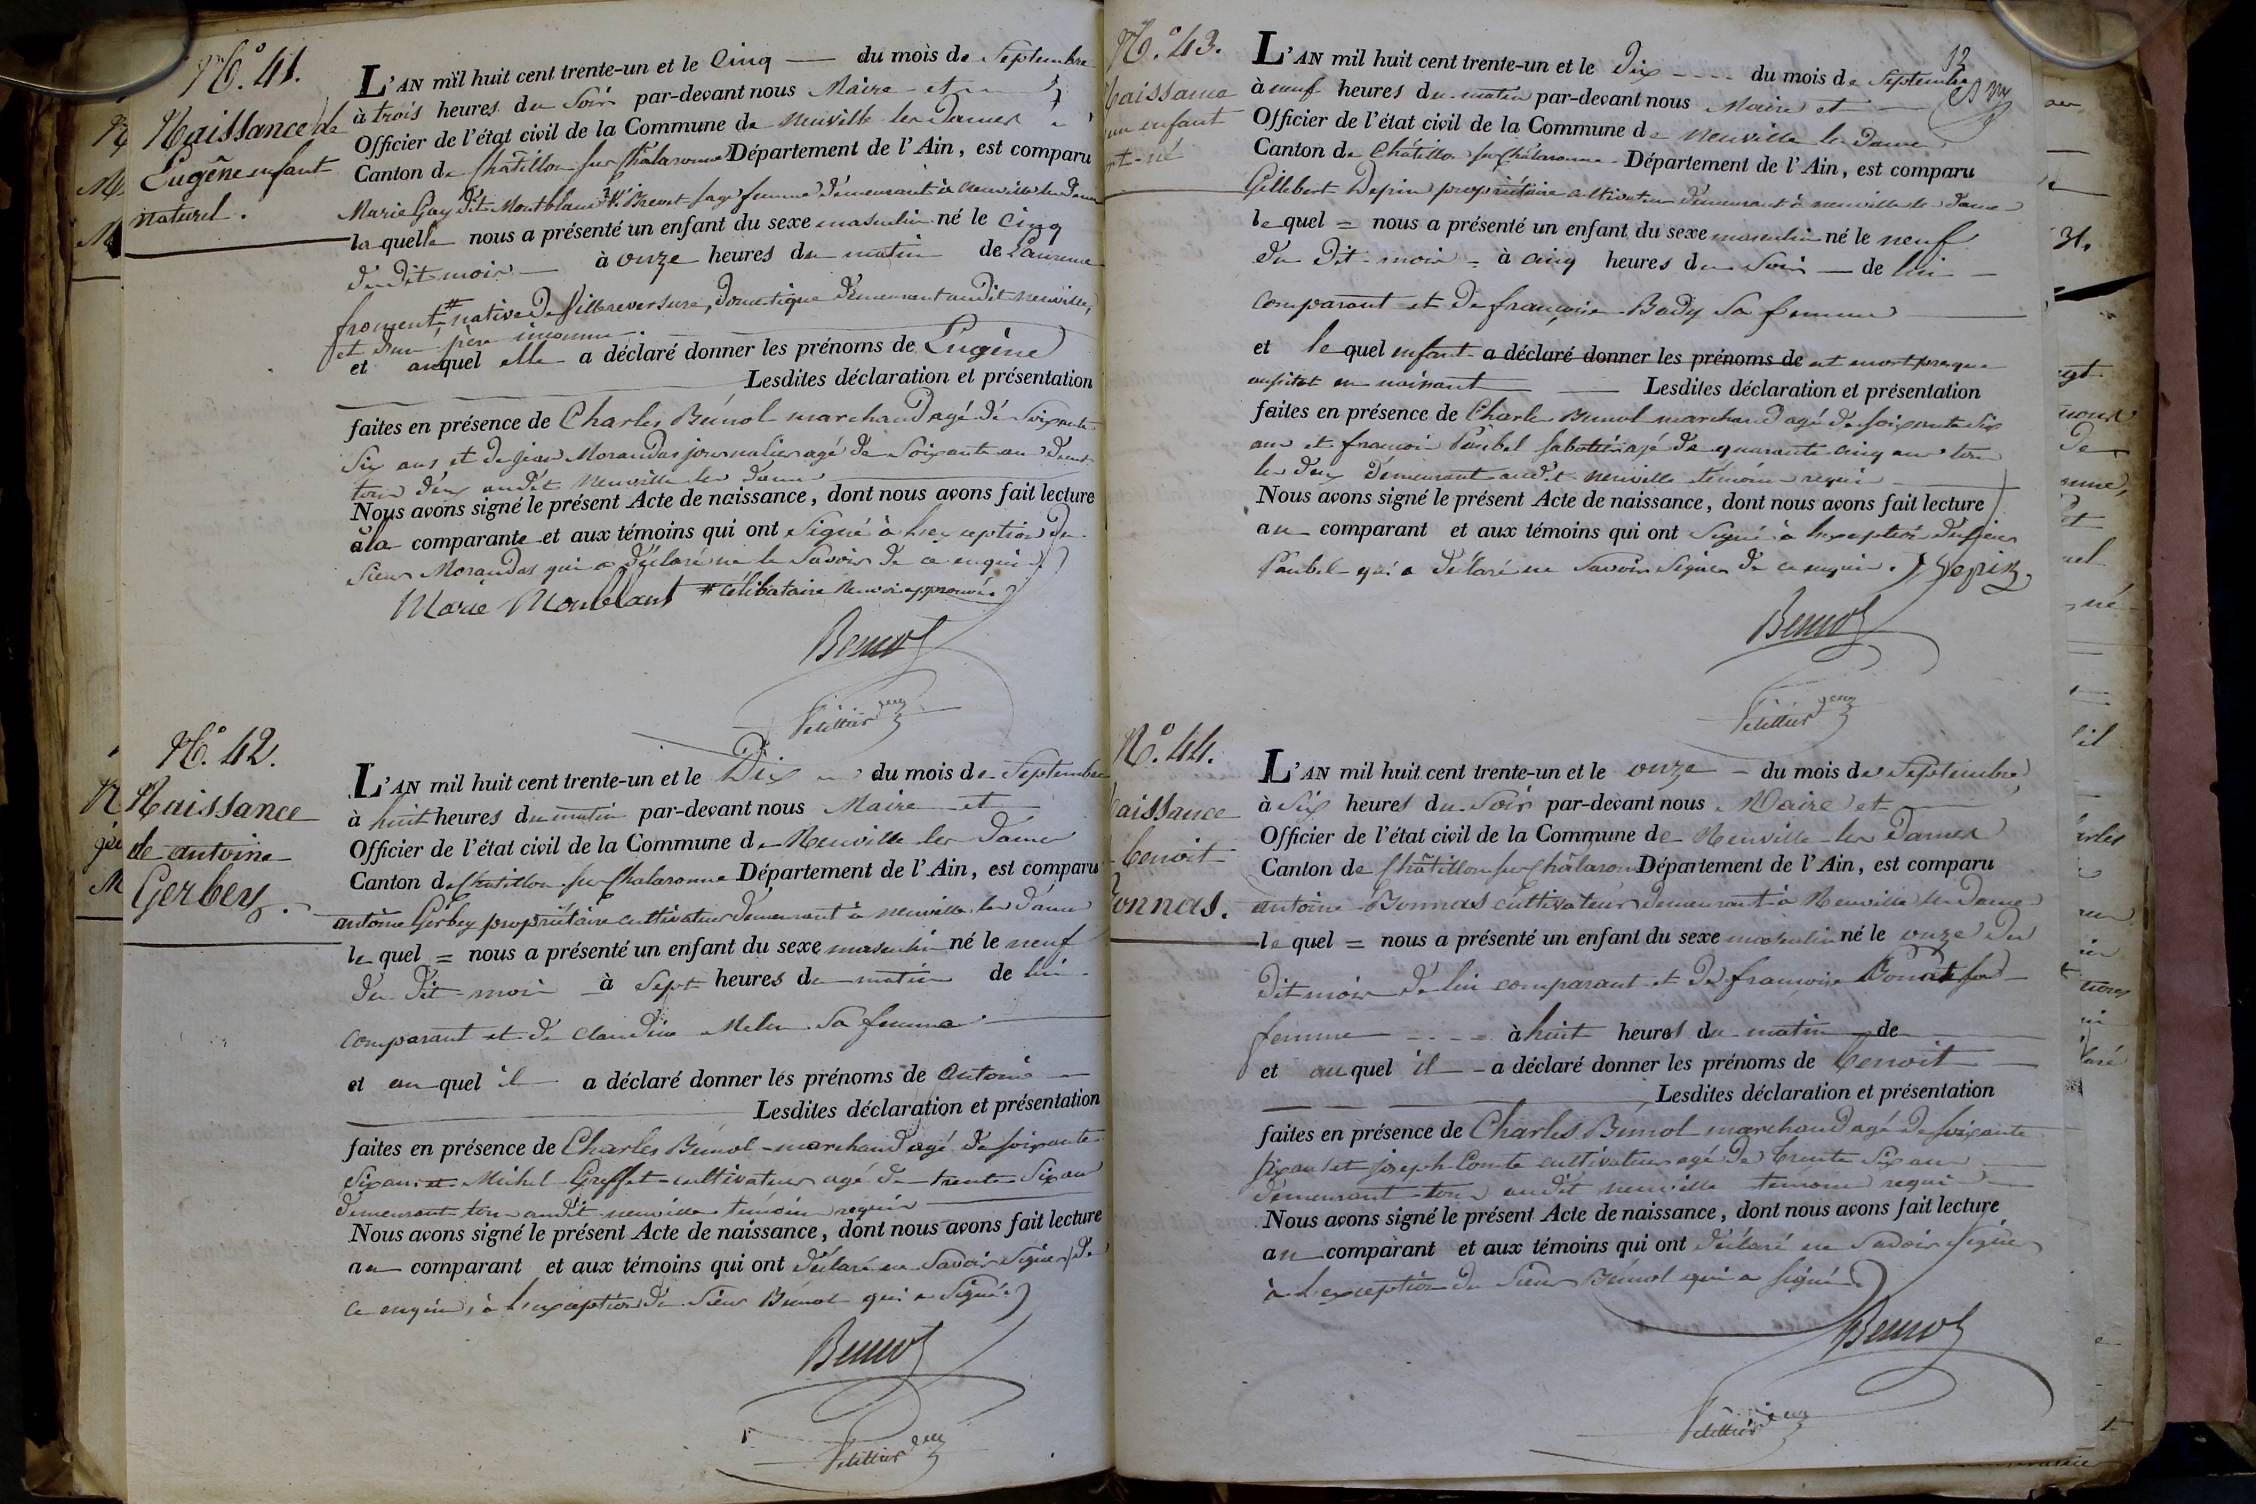 N.º 41.
Naissance de
Eugêne enfant
naturel.
L'AN mil huit cent trente-un et le Cinq du mois de Septembre
à trois heures du Soir par-devant nous Maire et
Officier de l'état civil de la Commune de Neuville les Dames
Canton de Châtillon sur Châlaronne Département de l'Ain, est comparu
Marie Gay dit Montblanc Ve Brevet sage femme demeurant à Neuville les Dames
laquelle nous a présenté un enfant du sexe masculin né le Cinq
du dit mois à onze heures du matin de Laurence
froment # native de Villereversure, domestique demeurant audit Neuville,
et d'un père inconnu
et auquel elle a déclaré donner les prénoms de Eugène
Lesdites déclaration et présentation
faites en présence de Charles Bémol marchand agé de Soixante
Six ans et de jean Morandas journalier agé de Soixante ans
tous deux audit Neuville les dames
Nous avons signé le présent Acte de naissance, dont nous avons fait lecture
à la comparante et aux témoins qui ont Signé à l'exception du
Sieur Morandas qui a déclaré ne le Savoir de ce enquis
Marie Monblant # célibataire Renvoi approuvé
Bemol
Pelittier
N.º 42.
Naissance
de antoine
Gerbey.
L'AN mil huit cent trente-un et le Dix du mois de Septembre
à huit heures du matin par-devant nous Maire et
Officier de l'état civil de la Commune de Neuville les Dames
Canton de Chatillon sur Chalaronne Département de l'Ain, est comparu
antoine Gerbey propriétaire cultivateur demeurant à neuville les dames
lequel = nous a présenté un enfant du sexe masculin né le neuf
du dit mois à Sept heures du matin de lui
comparant et de Claudine Sa femme
et auquel il a déclaré donner les prénoms de antoine
Lesdites déclaration et présentation
faites en présence de Charles Bémol marchand agé de soixante
Six ans et Michel Greffet cultivateur agé de trente Six ans
demeurant tous audit neuville témoins requis
Nous avons signé le présent Acte de naissance, dont nous avons fait lecture
au comparant et aux témoins qui ont déclaré ne Savoir Signer de
ce enquis, à l'exception du Sieur Bémol qui a Signé.
Bemol
Pelittier
N.º 43.
Naissance
un enfant
né
12
L'AN mil huit cent trente-un et le Dix du mois de Septembre
à neuf heures du matin par-devant nous Maire et
Officier de l'état civil de la Commune de Neuville les Dames
Canton de Châtillon sur Châlaronne Département de l'Ain, est comparu
Gillebert Depin propriétaire cultivateur demeurant à neuville les dames
lequel = nous a présenté un enfant du sexe masculin né le neuf
du dit mois à cinq heures du Soir de lui
comparant et de françoise Bady Sa femme
et lequel enfant a déclaré donner les prénoms de est mort presque
aussitot en naissant Lesdites déclaration et présentation
faites en présence de Charles Bémol marchand agé de soixante Six
ans et francois Paubel sabotier agé de quarante cinq ans tous
les deux demeurant audit neuville témoins requis
Nous avons signé le présent Acte de naissance, dont nous avons fait lecture
au comparant et aux témoins qui ont Signé à l'exception du sieur
Paubel qui a déclaré ne Savoir Signer de ce enquis. Depin
Bemol
Pelittier
N.º 44.
Naissance
benoit
Bonnas.
L'AN mil huit cent trente-un et le onze du mois de Septembre
à Six heures du Soir par-devant nous Maire et
Officier de l'état civil de la Commune de Neuville les Dames
Canton de Châtillon sur Châlaronne Département de l'Ain, est comparu
antoine Bonnas cultivateur demeurant à Neuville les Dames
lequel = nous a présenté un enfant du sexe masculin né le onze du
dit mois de lui comparant et de françoise sa
femme à huit heures du matin de
et auquel il a déclaré donner les prénoms de benoit
Lesdites déclaration et présentation
faites en présence de Charles Bémol marchand agé de soixante
six ans et joseph Comte cultivateur agé de trente Six ans
demeurant tous audit neuville temoins requis
Nous avons signé le présent Acte de naissance, dont nous avons fait lecture
au comparant et aux témoins qui ont déclaré ne Savoir signer
à l'exception du Sieur Bémol qui a signé
Bemol
Pelittier